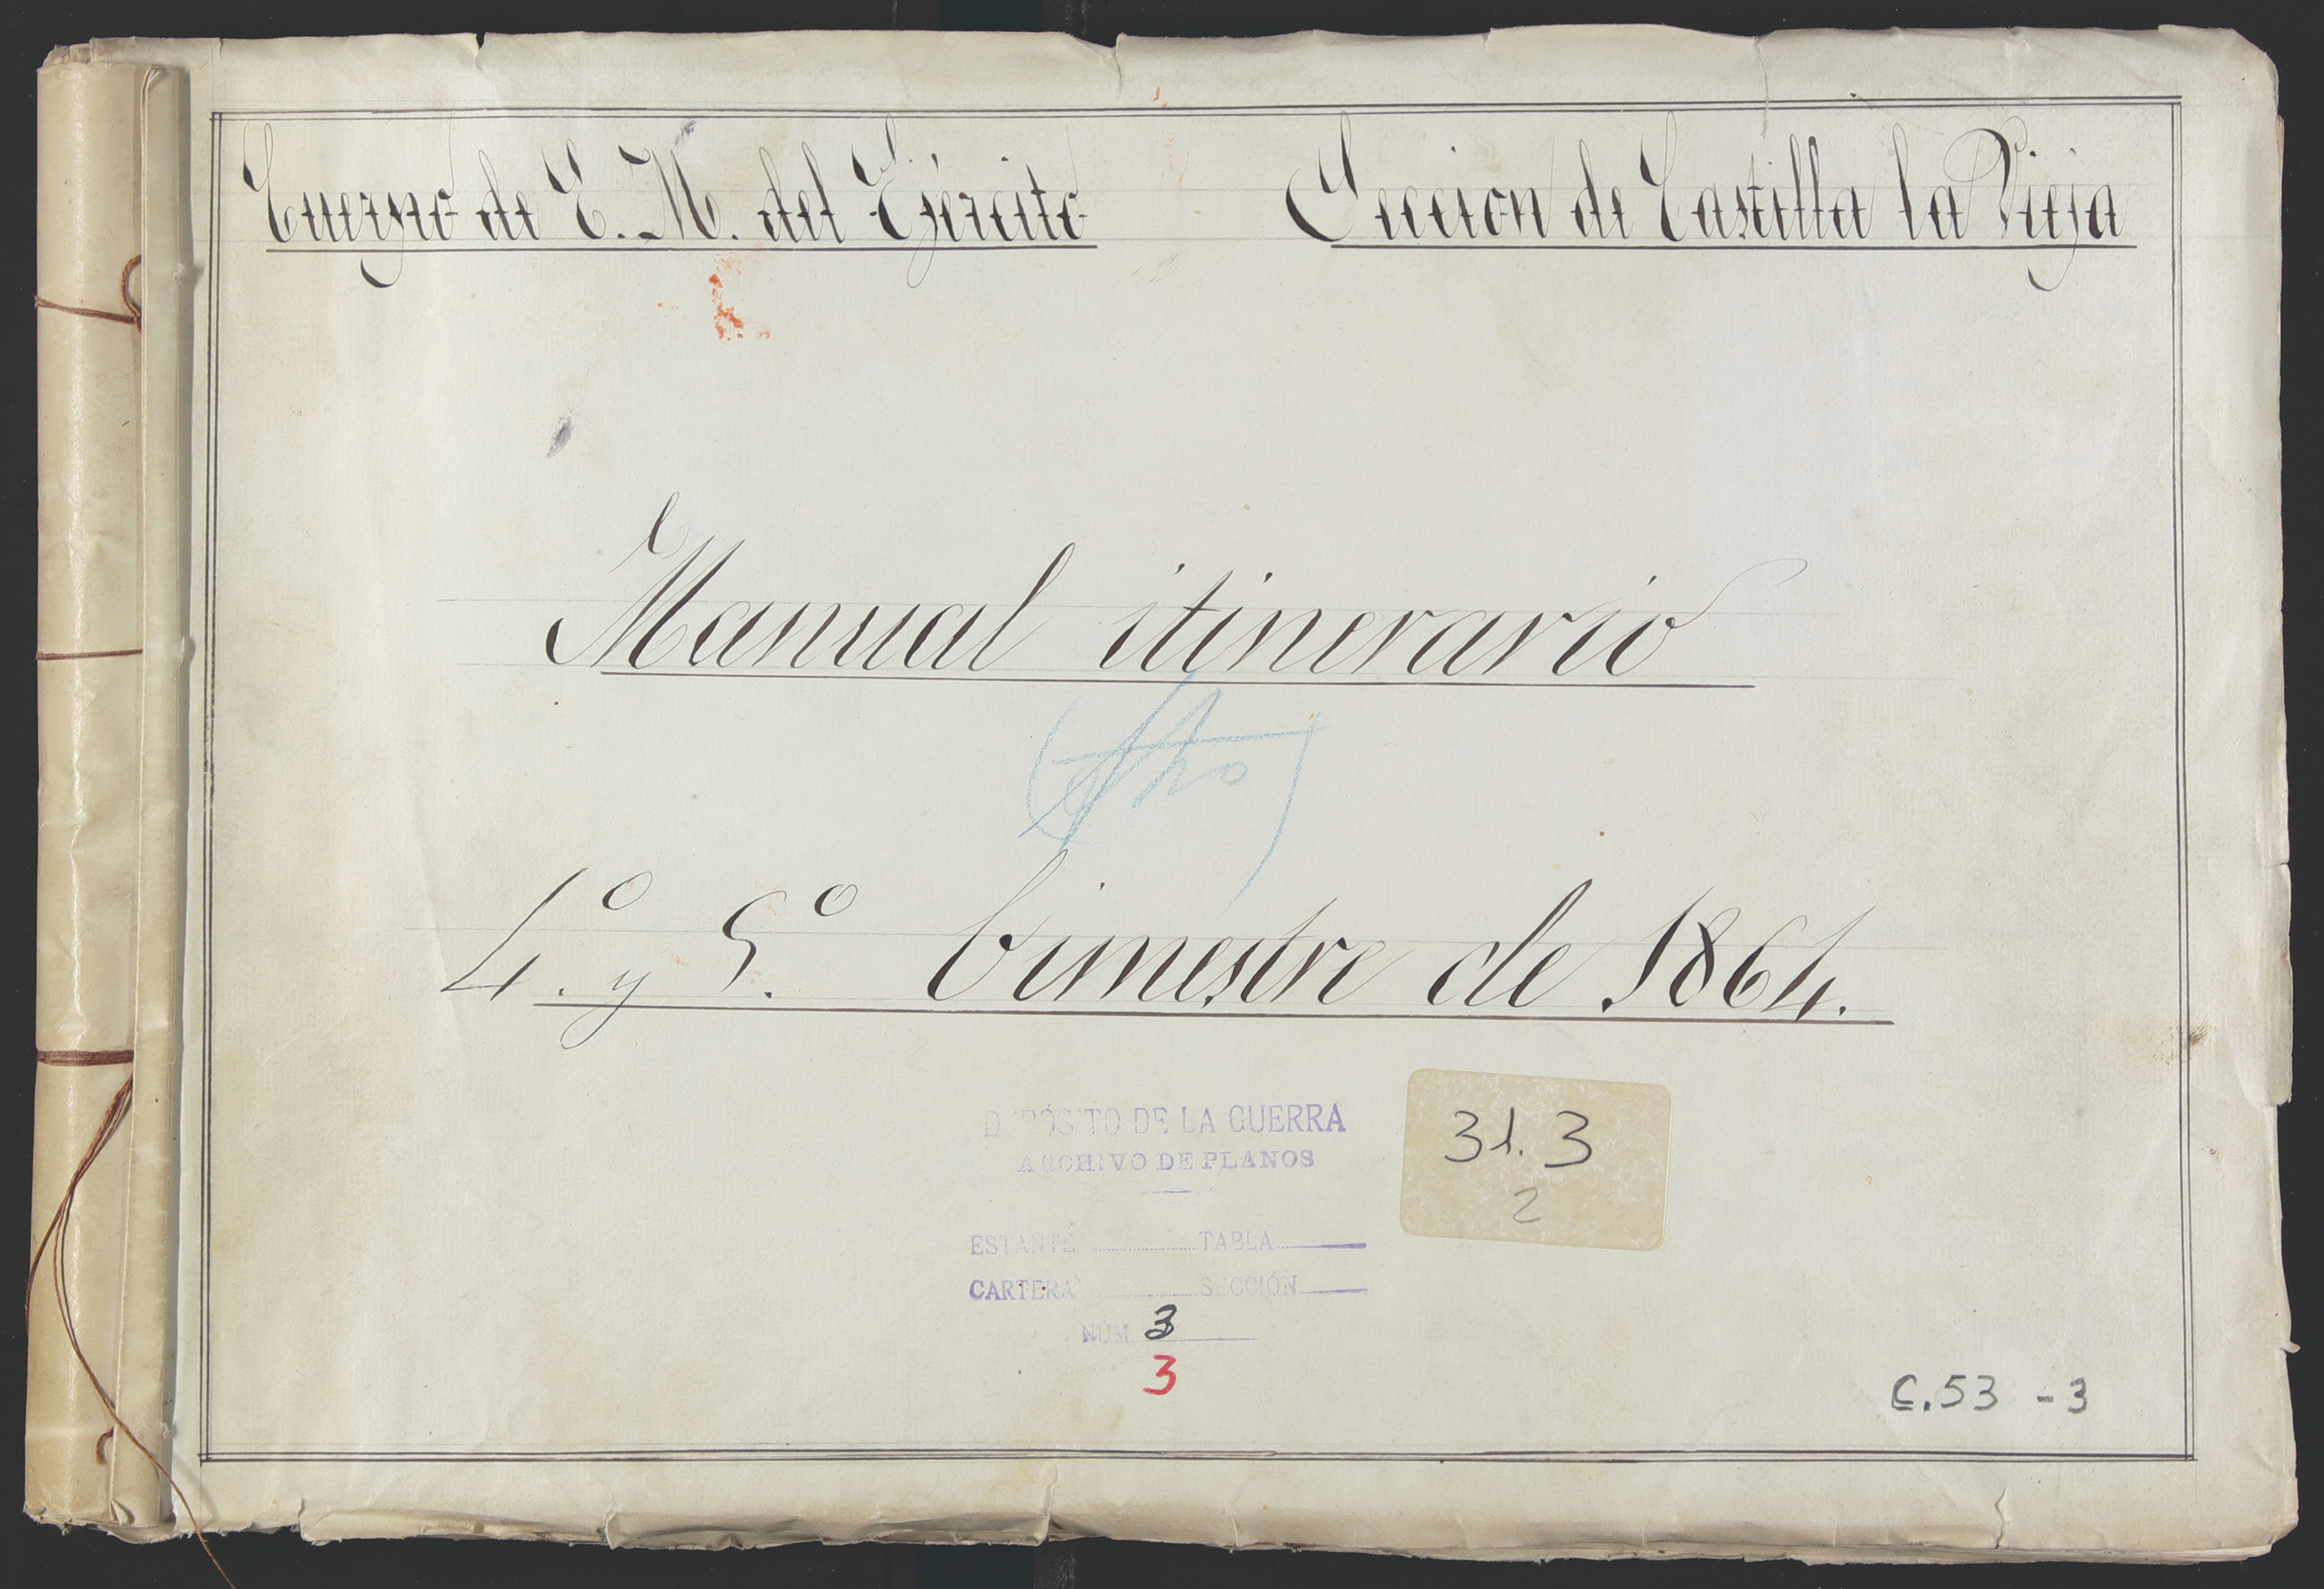 Cuerpo de E. M. del Ejército
Seccion de Castilla la Vieja
Manual itinerario
4.º y 5.º bimestre de 1864.
DEPÓSITO DE LA GUERRA
ARCHIVO DE PLANOS
ESTANTE TABLA
CARTERA SECCIÓN
NÚM. 3
3
31.3
2
C.53 - 3